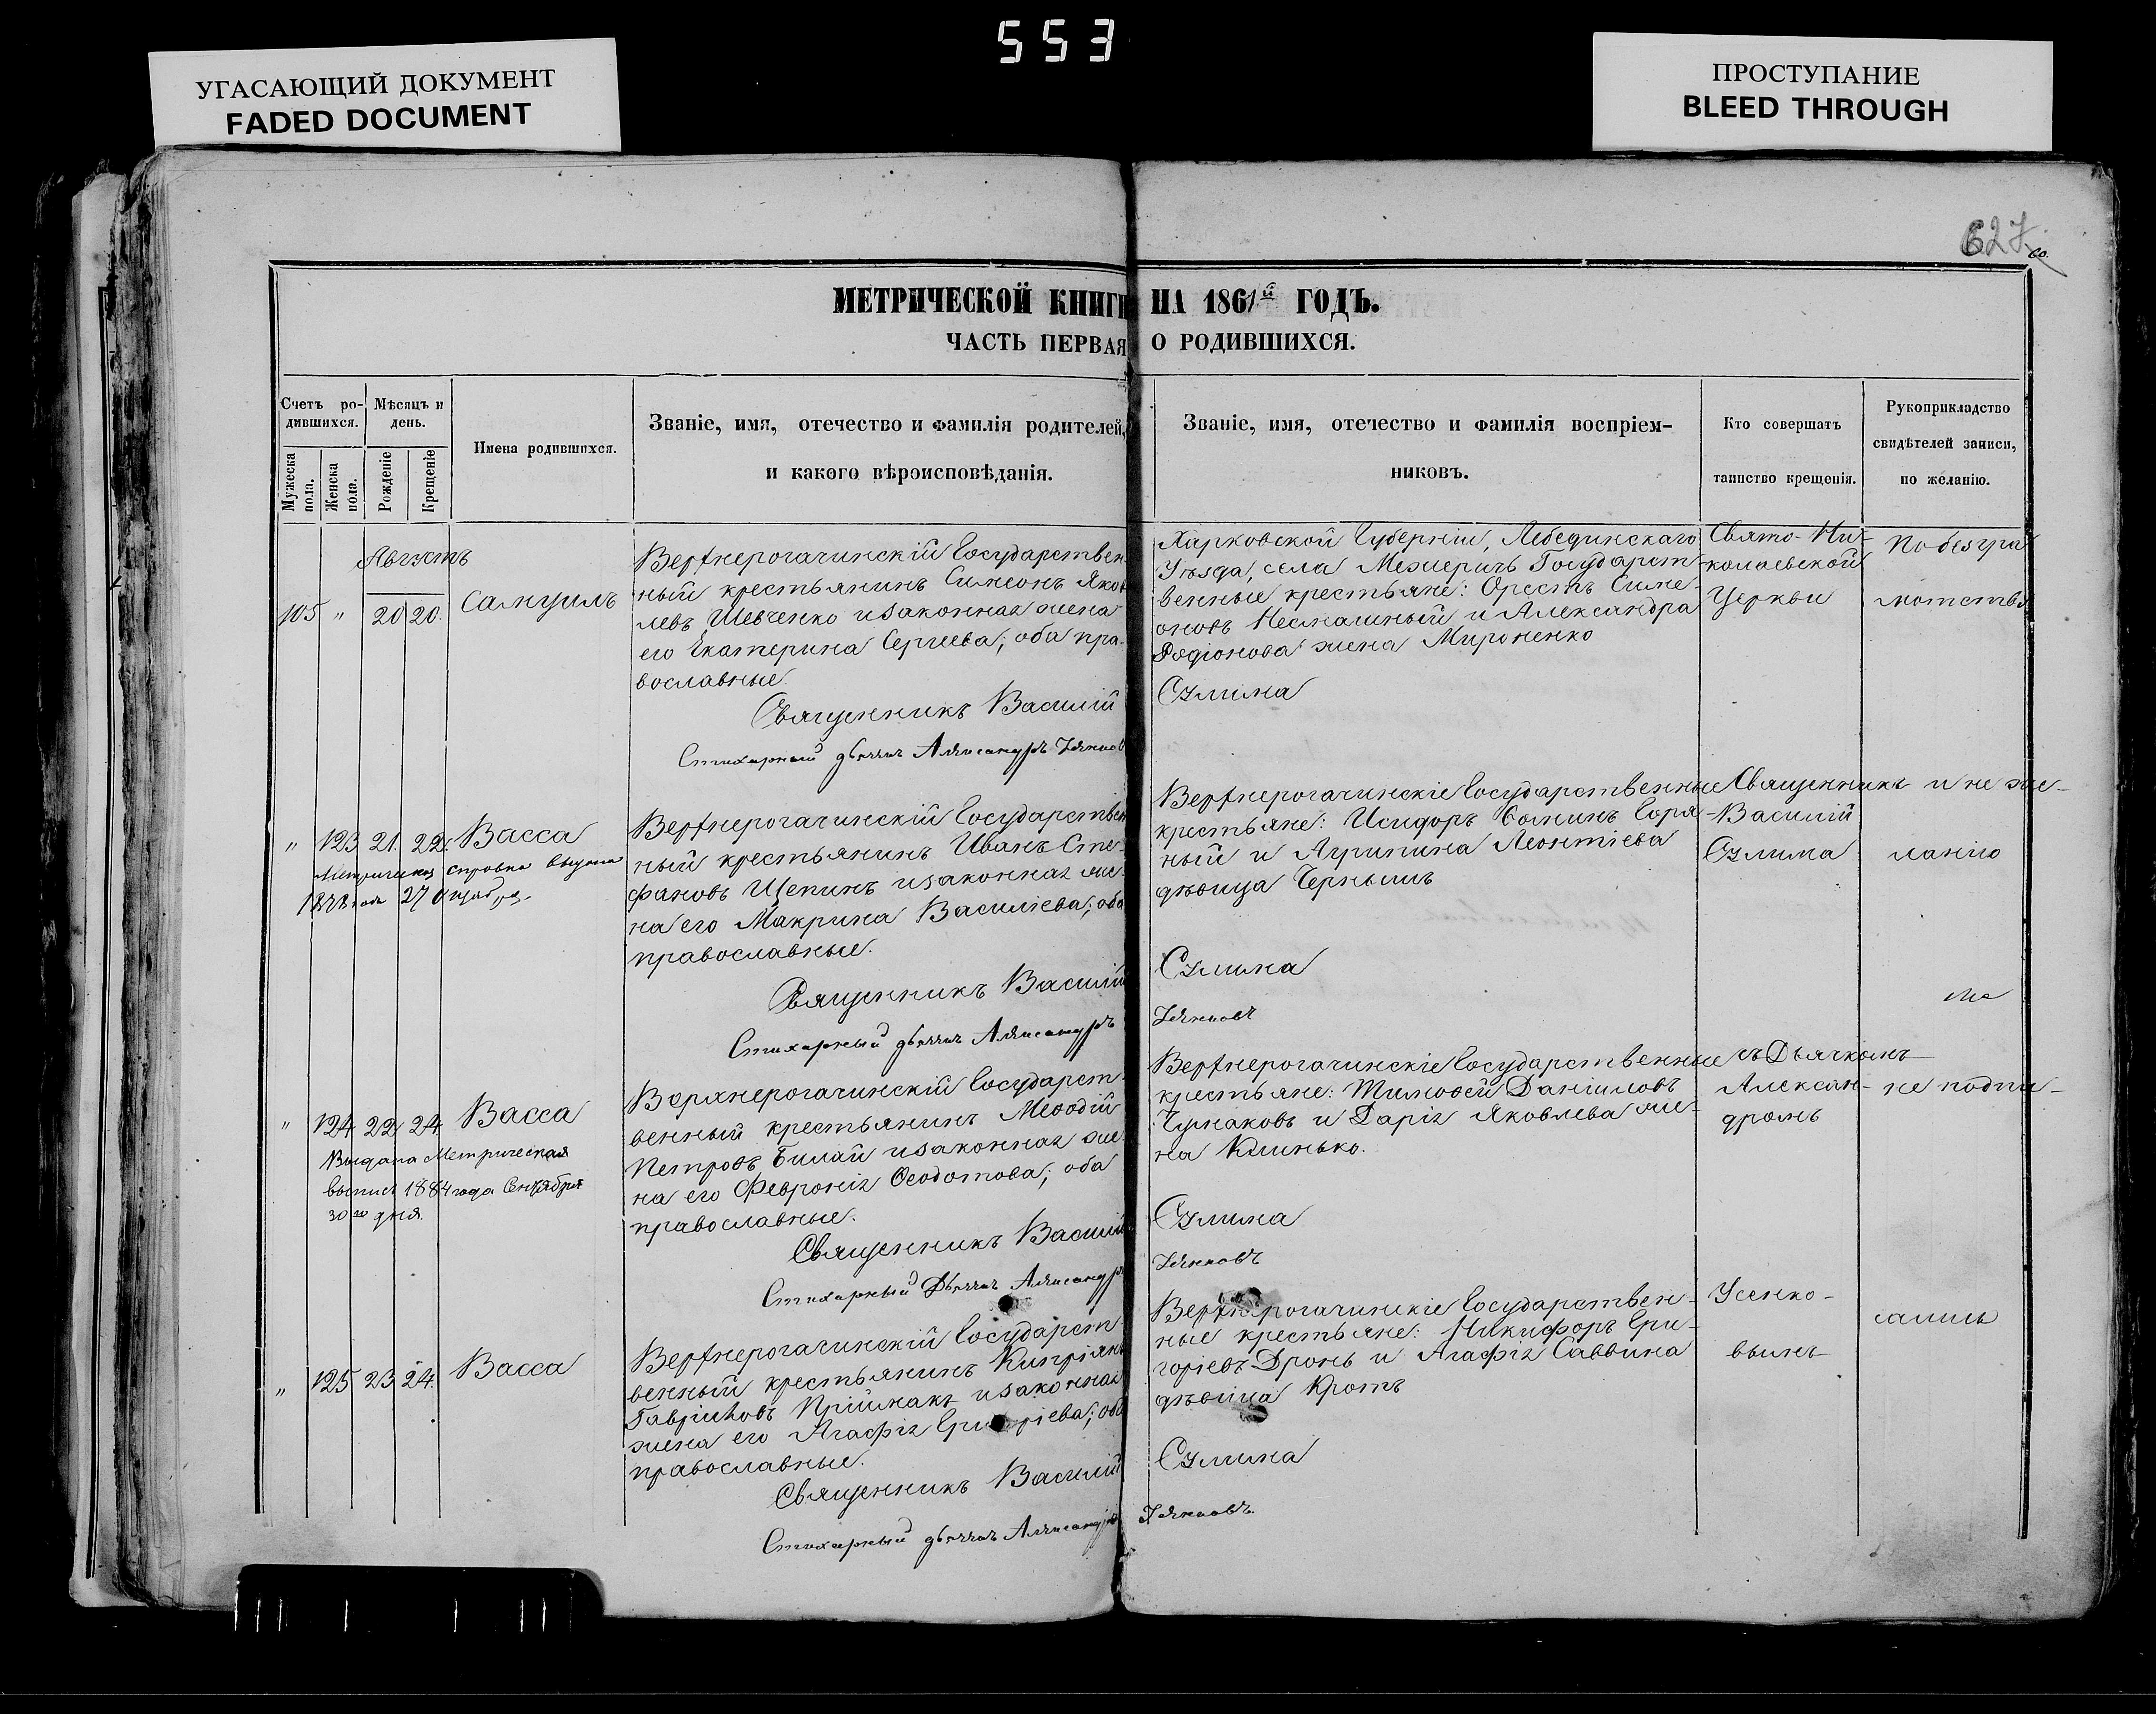 553
УГАСАЮЩИЙ ДОКУМЕНТ
FADED DOCUMENT
ПРОСТУПАНИЕ
BLEED THROUGH
627
60.
МЕТРИЧЕСКОЙ КНИГИ НА 1861й ГОДЪ.
ЧАСТЬ ПЕРВАЯ О РОДИВШИХСЯ.
Счетъ ро-
дившихся.
Мужеска пола.
Женска пола.
Мѣсяцъ и
день.
Рожденіе
Крещеніе
Имена родившихся.
Званіе, имя, отечество и фамилія родителей,
и какого вѣроисповѣданія.
Званіе, имя, отечество и фамилія воспріем-
никовъ.
Кто совершатъ
таинство крещенія.
Рукоприкладство
свидѣтелей записи,
по желанію.
Августъ
105 " 20 20. Самуилъ
Верхнерогачинскій Государствен
ный крестьянинъ Симеонъ Яков
левъ Шевченко и законная жена
его Екатерина Сергѣева; оба пра-
вославные.
Священникъ Василій Сулима
Стихарный дьячекъ Александръ
Харковской Губерніи, Лебединскаго
Уѣзда, села Межеричъ Государст-
венные крестьяне: Орестъ Симе-
оновъ Несмашный и Александра
Родіонова жена Мироненко
Свято-Ни-
колаевской
Церкви
По безгра
мотству
" 123 21. 22. Васса
Метрическая справка выдана
1878 года 27 Октября.
Верхнерогачинскій Государствен
ный крестьянинъ Иванъ Сте-
фановъ Щепинъ и законная же-
на его Макрина Василіева; оба
православные.
Священникъ Василій Сулима
Стихарный дьячекъ Александръ
Верхнерогачинскіе Государственные
крестьяне: Исидоръ Фоминъ Горя-
ный и Агрипина Леонтіева
дѣвица Чернышъ
Священникъ
Василій
Сулима
и не же-
ланію
не
" 124 22 24 Васса
Выдана Метрическая
выпись 1884 года Сентября
30го дня.
Верхнерогачинскій Государст-
венный крестьянинъ Меѳодій
Петровъ Билай и законная же-
на его Февронія Ѳеодотова; оба
православные.
Священникъ Василій Сулима
Стихарный Дьячекъ Александръ
Верхнерогачинскіе Государственные
крестьяне: Тимоѳей Даніиловъ
Чумаковъ и Дарія Яковлева же-
на Клинько.
съ Дьячкомъ
Алексан-
дромъ
не подпи-
" 125 23 24. Васса
Верхнерогачинскій Государст-
венный крестьянинъ Кипріянъ
Гавріиловъ Пріймакъ и законная
жена его Агафія Григоріева; оба
православные.
Священникъ Василій Сулима
Стихарный дьячекъ Александръ
Верхнерогачинскіе Государствен-
ные крестьяне: Никифоръ Гри-
горіевъ Дронь и Агафія Саввина
дѣвица Кротъ
Усенко-
вымъ
сались